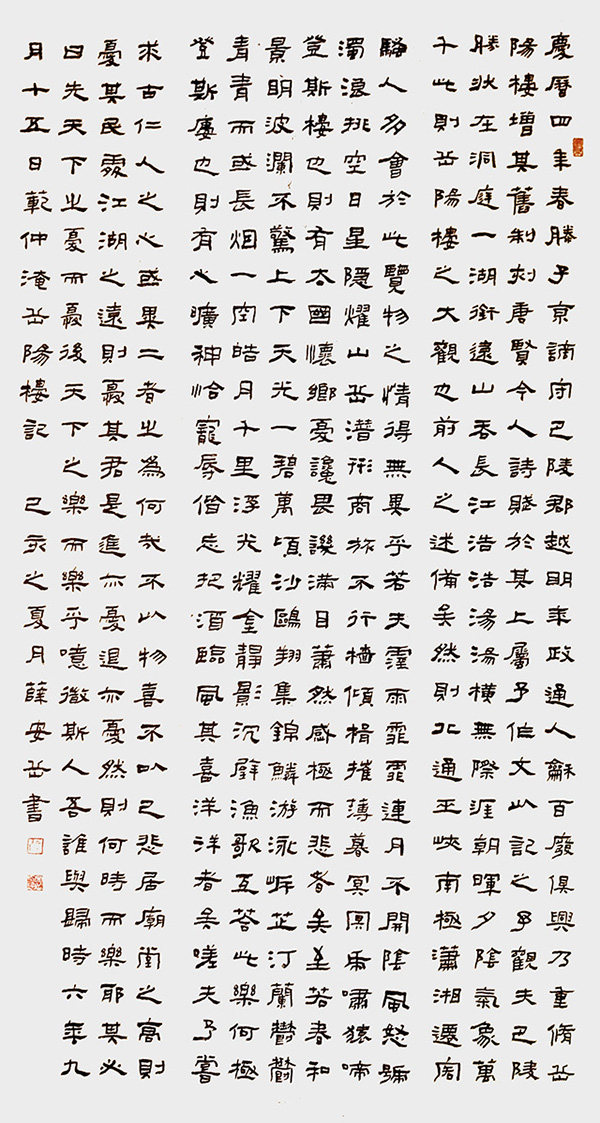 慶曆四年春滕子京謫守巴陵郡越明年政通人龢百廢俱興乃重脩岳
陽樓增其舊制刻唐賢今人詩賦於其上屬予作文以記之予觀夫巴陵
勝狀在洞庭一湖銜遠山吞長江浩浩湯湯橫無際涯朝暉夕陰氣象萬
千此則岳陽樓之大觀也前人之述備矣然則北通巫峽南極瀟湘遷客
騷人多會於此覽物之情得無異乎若夫霪雨霏霏連月不開陰風怒號
濁浪排空日星隱耀山岳潛形商旅不行檣傾楫摧薄暮冥冥虎嘯猿啼
登斯樓也則有去國懷鄉憂讒畏譏滿目蕭然感極而悲者矣至若春和
景明波瀾不驚上下天光一碧萬頃沙鷗翔集錦鱗游泳岸芷汀蘭鬱鬱
青青而或長烟一空皓月千里浮光耀金靜影沉璧漁歌互答此樂何極
登斯樓也則有心曠神怡寵辱偕忘把酒臨風其喜洋洋者矣嗟夫予嘗
求古仁人之心或異二者之為何哉不以物喜不以己悲居廟堂之高則
憂其民處江湖之遠則憂其君是進亦憂退亦憂然則何時而樂耶其必
曰先天下之憂而憂後天下之樂而樂乎噫微斯人吾誰與歸時六年九
月十五日範仲淹岳陽樓記 己亥之夏月薛安岳書